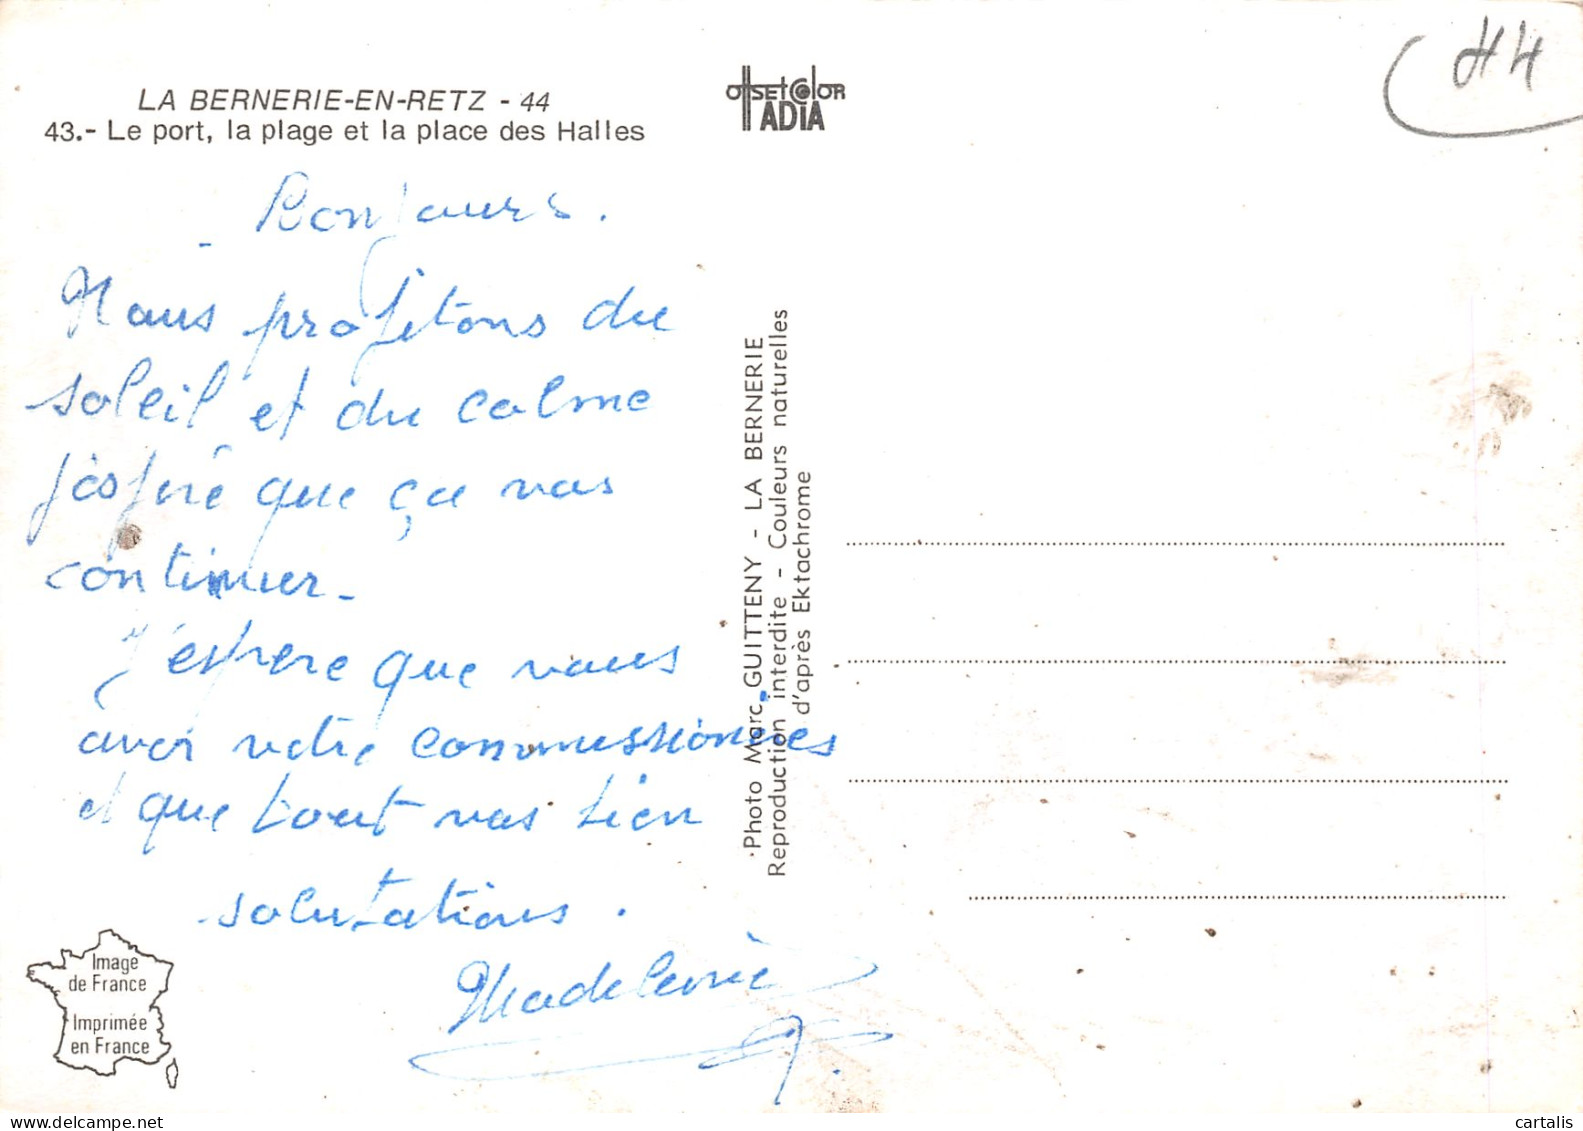 44
LA BERNERIE-EN-RETZ - 44
43.- Le port, la plage et la place des Halles
OffSEt COlOR
IADIA
- Bonjours.
Nous profitons du
soleil et du calme
j'espère que ça vas
continuer -
J'espere que vous
aver votre commessionées
et que tout vas bien
salutations.
Madeleine
Photo Marc GUITTENY - LA BERNERIE
Reproduction interdite - Couleurs naturelles
d'après Ektachrome
Image
de France
Imprimée
en France
cartalis